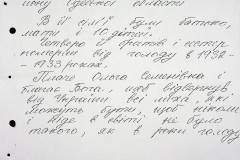 йону Одеської області
В її сім'ї були батько,
мати і 10 дітей.
Четверо її братів і сестер
померли від голоду в 1932-
- 1933 роках.
Плаче Ольга Семенівна і
благає Бога, щоб відвернув
від України всі лиха, які
можуть бути, щоб ніколи
і ніде в світі не було
такого, як в роки голоду